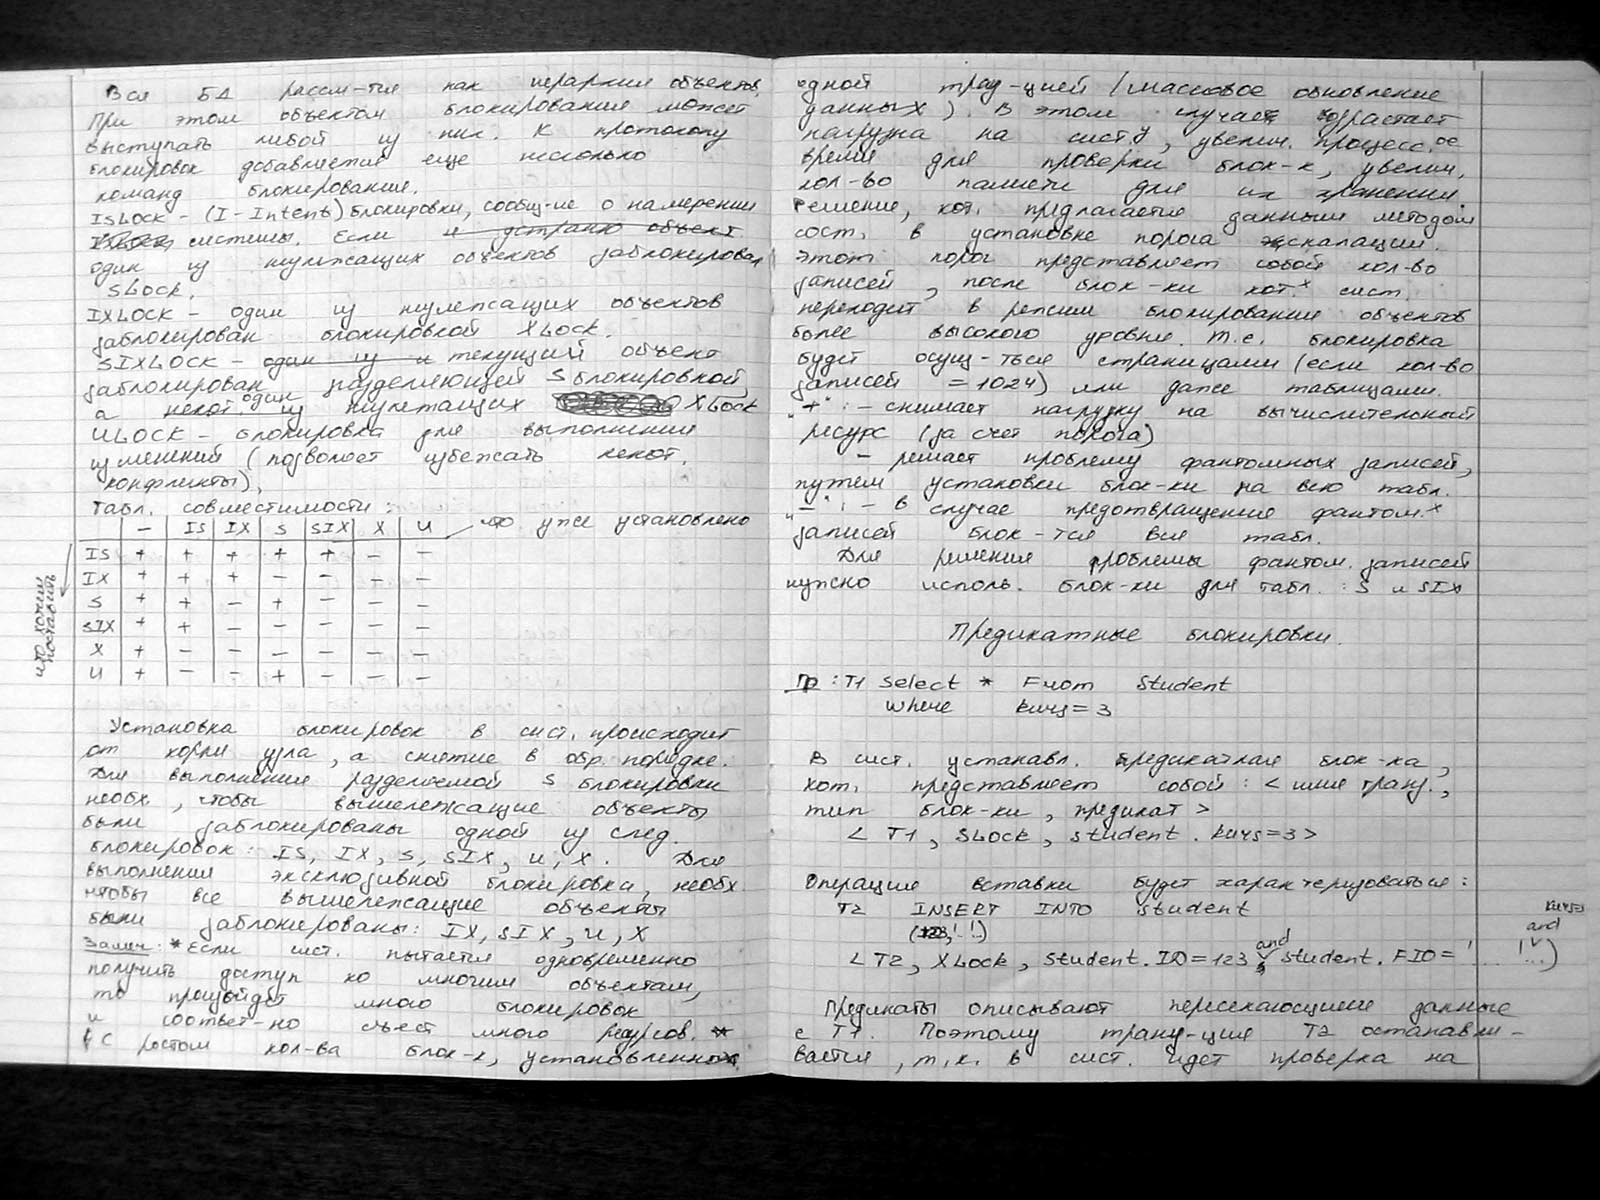 Вся БД рассм-тся как иерархия объектов.
При этом объектом блокирования может
выступать любой из них. К протоколу
блокировок добавляется еще несколько
команд блокирования.
ISLOCK - (I-Intent) блокировки, сообщ-ие о намерении
системы. Если
один из нижележащих объектов заблокирован
SLOCK.
IXLOCK - один из нижележащих объектов
заблокирован блокировкой XLOCK.
SIXLOCK - текущий объект
заблокирован разделяющей S блокировкой,
а некот. один из нижлежащих XLOCK
ULOCK - блокировка для выполнения
изменений (позволяет избежать некот.
конфликты).
Табл. совместимости:
- IS IX S SIX X U что уже установлено
IS + + + + + - -
IX + + + - - - -
S + + - + - - -
SIX + + - - - - -
X + - - - - - -
U + - - + - - -
что хотим
поставить
Установка блокировок в сист. происходит
от корня узла, а снятие в обр. порядке.
Для выполнения разделяемой S блокировки
необх, чтобы вышележащие объекты
были заблокированы одной из след.
блокировок: IS, IX, S, SIX, U, X. Для
выполнения эксклюзивной блокировки, необх.
чтобы все вышележащие объекты
были заблокированы: IX, SIX, U, X
Замеч: * Если сист. пытается одновременно
получить доступ ко многим объектам,
то произойдет много блокировок
и соответ-но съест много ресурсов. *
С ростом кол-ва блок-к, установленных
одной транз-цией (массовое обновление
данных). В этом случае возрастает
нагрузка на сист-у, увелич. процесс.ое
время для проверки блок-к, увелич.
кол-во памяти для их хранения
Решение, кот. предлагается данным методом
сост. в установке порога эскалации.
Этот порог представляет собой кол-во
записей, после блок-ки кот.х сист.
переходит в режим блокирования объектов
более высокого уровня. Т.е. блокировка
будет осущ-ться страницами (если кол-во
записей = 1024) или даже таблицами.
"+": - снимает нагрузку на вычислительный
ресурс (за счет порога)
- решает проблему фантомных записей,
путем установки блок-ки на всю табл.
"-": - в случае предотвращения фантом.х
записей блок-тся вся табл.
Для решения проблемы фантом. записей
нужно исполь. блок-ки для табл.: S и SIX
Предикатные блокировки.
Пр: T1 Select * From Student
where kurs = 3
В сист. устанавл. предикатная блок-ка,
кот. представляет собой: < имя транз.,
тип блок-ки, предикат >
< T1, SLOCK, student.kurs=3 >
Операция вставки будет характеризоваться:
T2 INSERT INTO student
(123, '..')
< T2, XLock, Student.ID=123 and student.FIO='...
kurs=
and
'...')
Предикаты описывают пересекающиеся данные
с T1. Поэтому транз-ция T2 останавли-
вается, т.к. в сист. идет проверка на